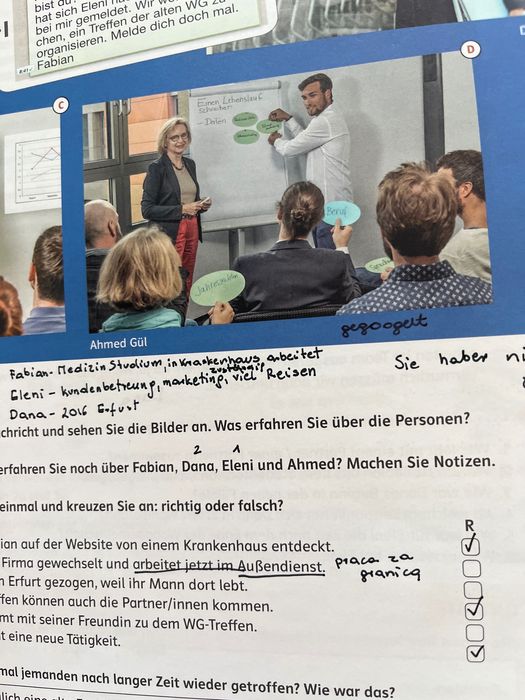 bist du
hat sich Eleni
bei mir gemeldet. Wir wo
chen, ein Treffen der alten WG zu
organisieren. Melde dich doch mal.
Fabian
D
C
Einen Lebenslauf
schreiben
- Daten
Beruf
Jahreszahlen
Ahmed Gül
gegoogelt
Fabian - Medizin Studium, in Krankenhaus arbeitet
zuständig
Eleni - kundenbetreung, marketing, viel Reisen
Sie haber ni
Dana - 2016 Erfurt
chricht und sehen Sie die Bilder an. Was erfahren Sie über die Personen?
2 1
erfahren Sie noch über Fabian, Dana, Eleni und Ahmed? Machen Sie Notizen.
einmal und kreuzen Sie an: richtig oder falsch?
R
ian auf der Website von einem Krankenhaus entdeckt.
Firma gewechselt und arbeitet jetzt im Außendienst. praca za
granicą
n Erfurt gezogen, weil ihr Mann dort lebt.
ffen können auch die Partner/innen kommen.
mt mit seiner Freundin zu dem WG-Treffen.
t eine neue Tätigkeit.
mal jemanden nach langer Zeit wieder getroffen? Wie war das?